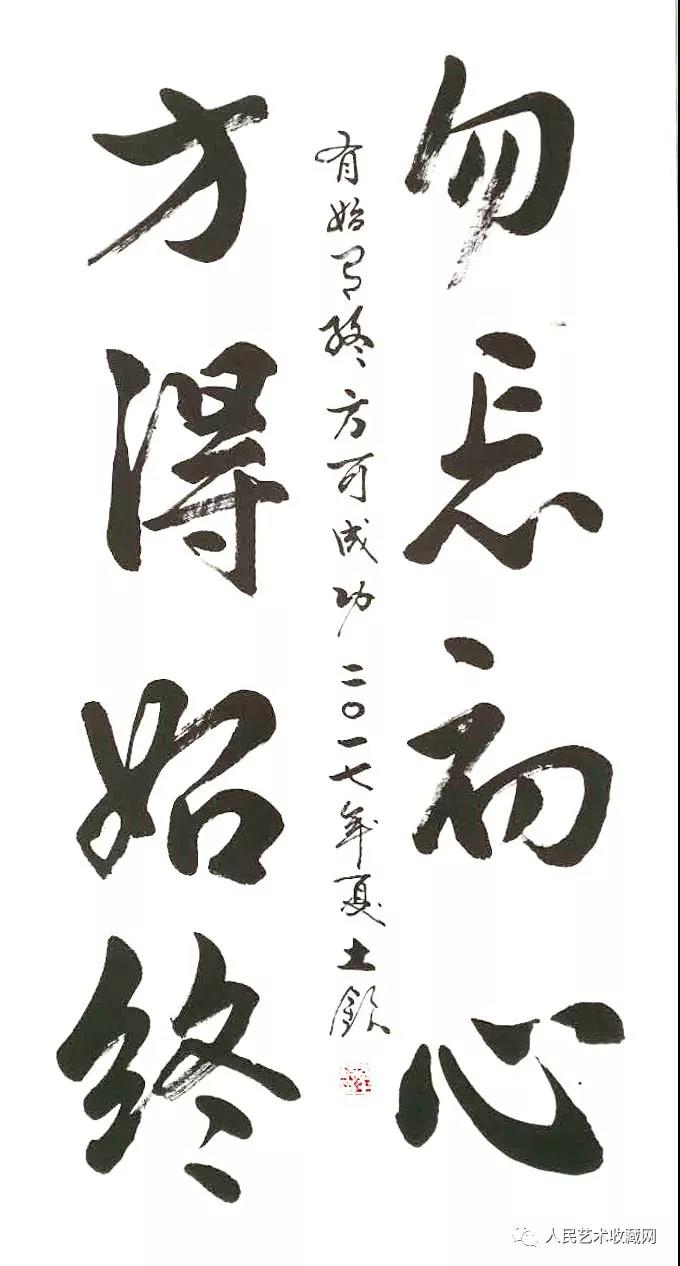 勿忘初心
有始有终方可成功二〇一七年夏土欽
方得始终
人民艺术收藏网